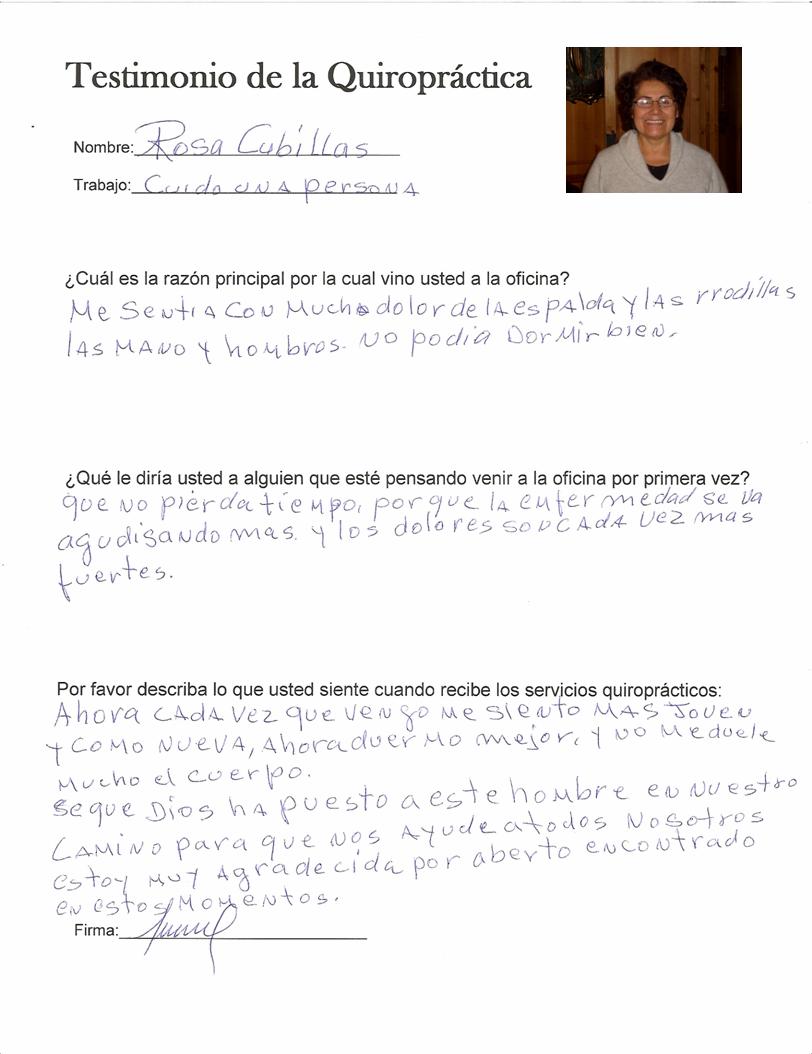 Testimonio de la Quiropráctica
Nombre: Rosa Cubillas
Trabajo: Cuido una persona
¿Cuál es la razón principal por la cual vino usted a la oficina?
Me sentia con mucho dolor de la espalda y las rrodillas
las mano y hombros. no podia dormir bien.
¿Qué le diría usted a alguien que esté pensando venir a la oficina por primera vez?
que no pierda tiempo, porque la enfermedad se va
agudisando mas. y los dolores son cada vez mas
fuertes.
Por favor describa lo que usted siente cuando recibe los servicios quiroprácticos:
Ahora cada vez que vengo me siento mas joven
y como nueva, Ahora duermo mejor, y no me duele
mucho el cuerpo.
se que Dios ha puesto a este hombre en nuestro
camino para que nos ayude a todos nosotros
estoy muy agradecida por aberto encontrado
en estos momentos.
Firma: